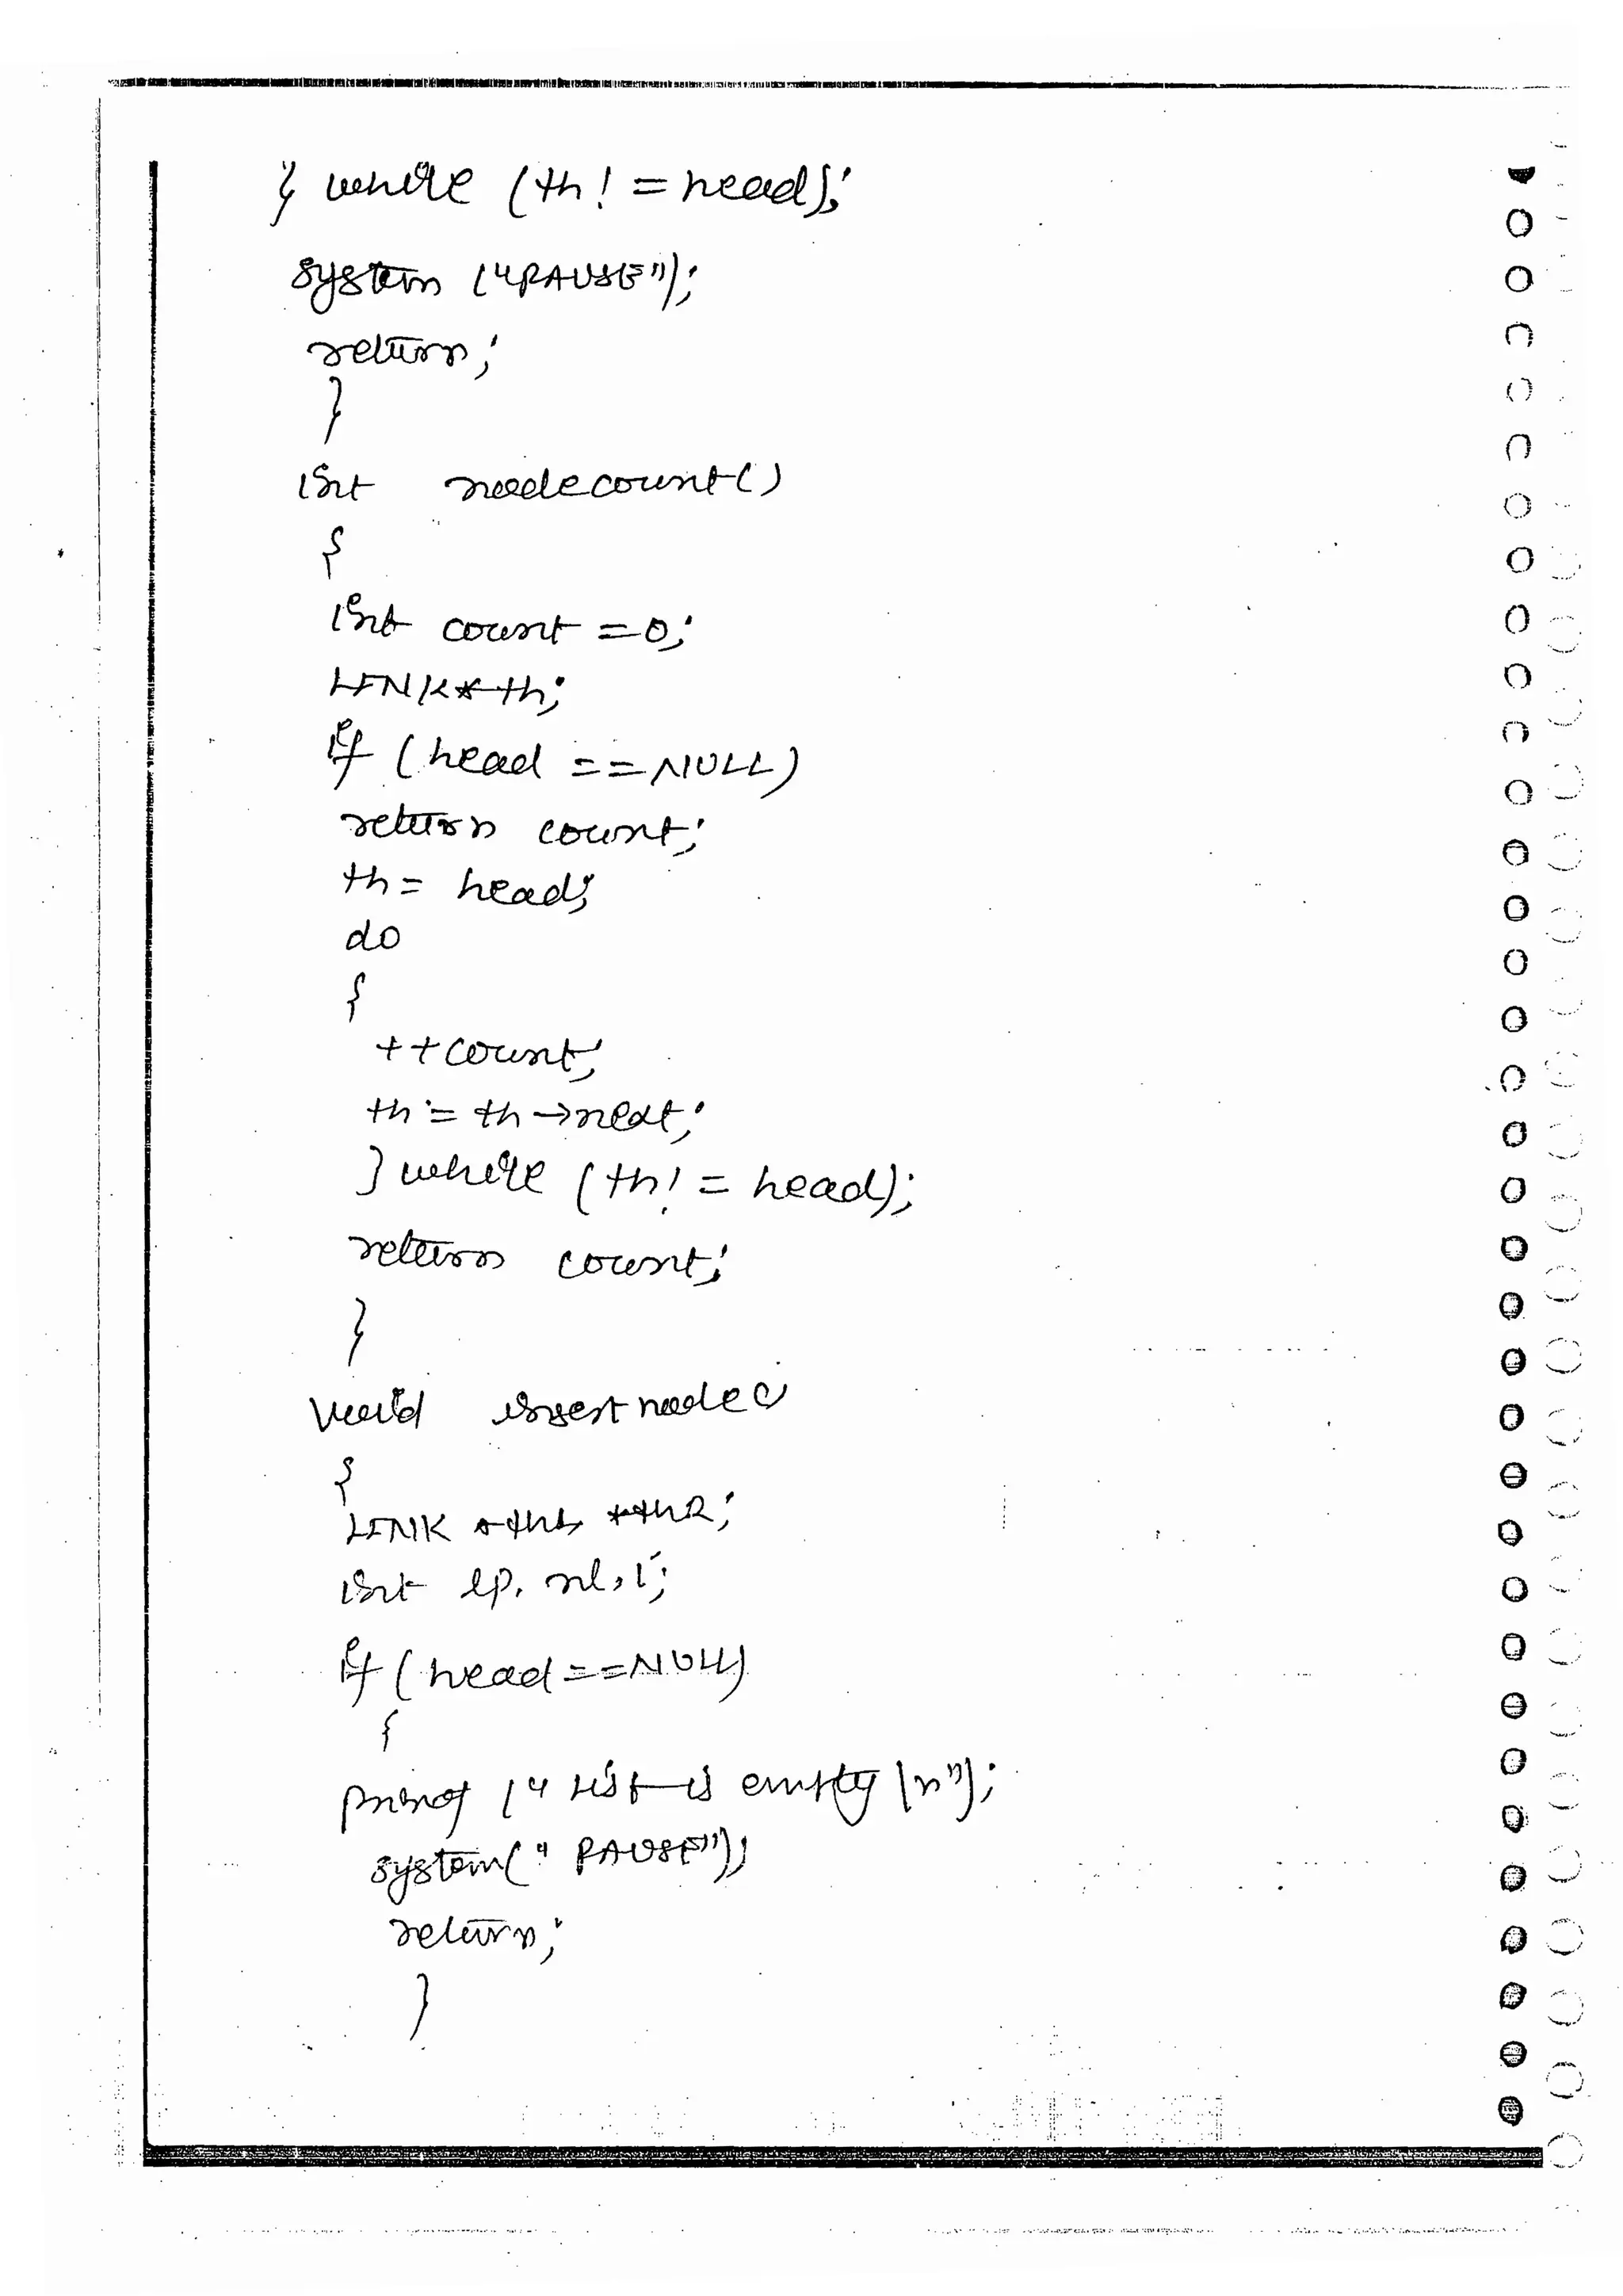 } while (th! = head);
system ("PAUSE");
return;
}
int nodecount()
{
int count =0;
LINK* th;
if (head ==NULL)
return count;
th= head;
do
{
++count;
th = th→next;
} while (th! = head);
return count;
}
void insertnode()
{
LINK *thL, *thR;
int lp, nl, i;
if (head==NULL)
{
printf ("List is empty \n");
system("PAUSE");
return;
}